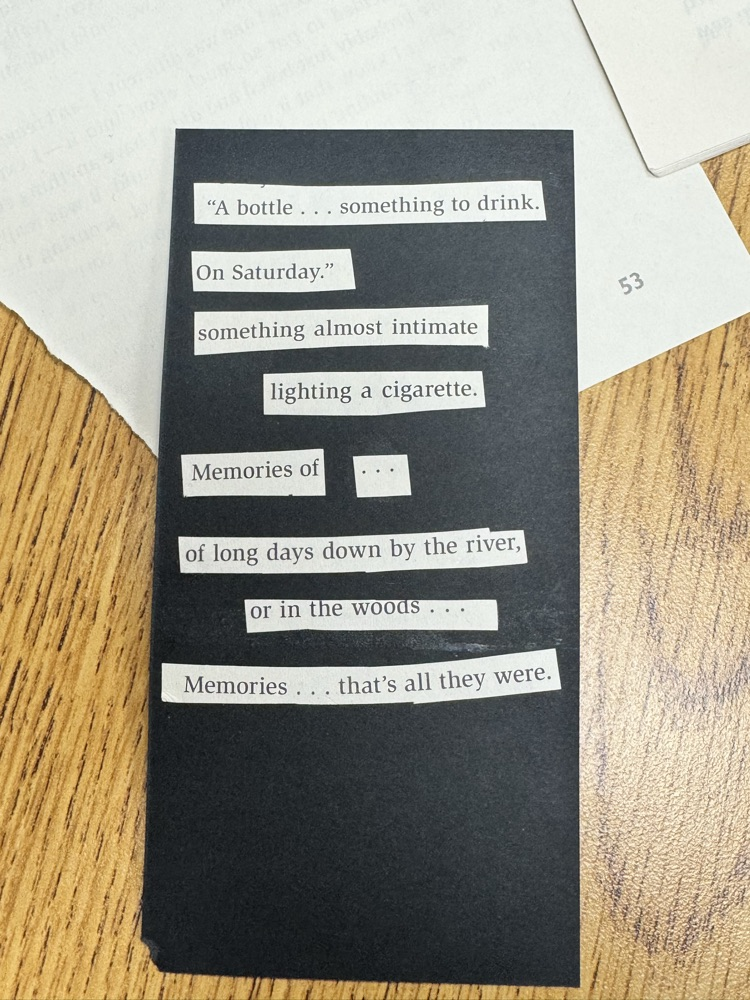 “A bottle . . . something to drink.
On Saturday.”
something almost intimate
lighting a cigarette.
Memories of . . .
of long days down by the river,
or in the woods . . .
Memories . . . that’s all they were.
53